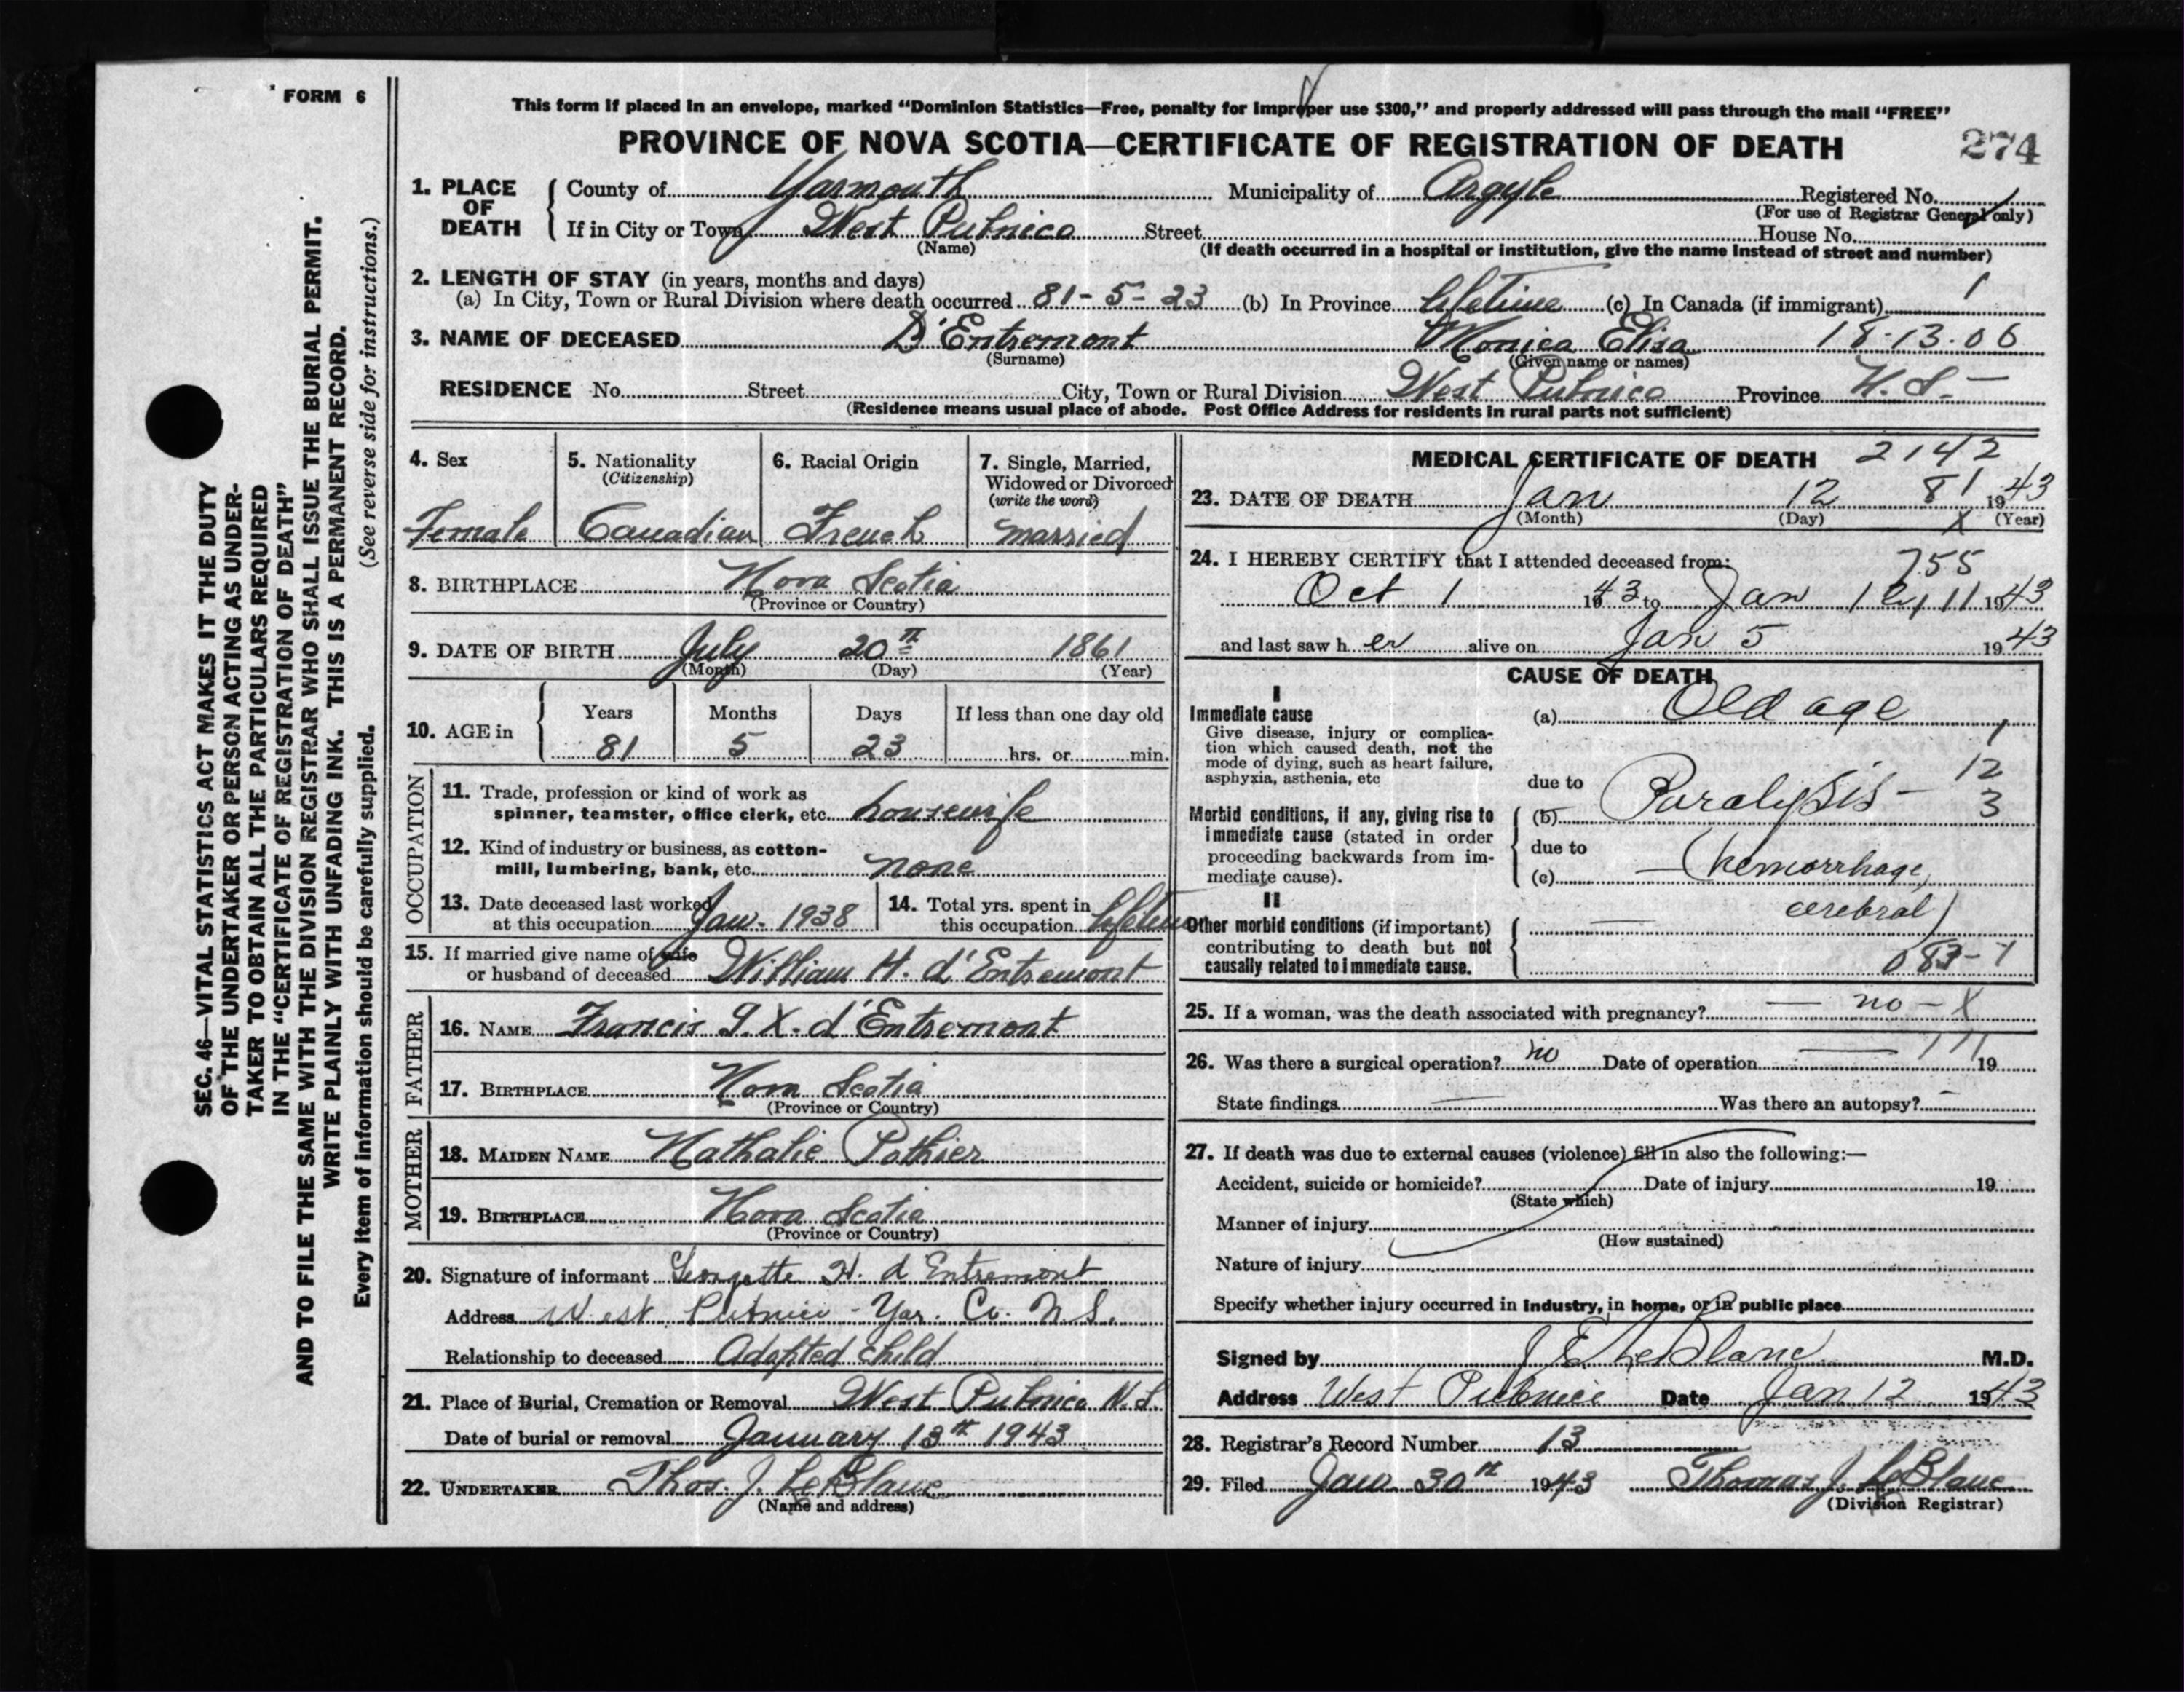 FORM 6
This form if placed in an envelope, marked “Dominion Statistics—Free, penalty for improper use $300,” and properly addressed will pass through the mail “FREE”
PROVINCE OF NOVA SCOTIA—CERTIFICATE OF REGISTRATION OF DEATH 274
1. PLACE OF DEATH County of Yarmouth Municipality of Argyle Registered No.
(For use of Registrar General only)
If in City or Town West Pubnico Street House No.
(Name) (If death occurred in a hospital or institution, give the name instead of street and number)
2. LENGTH OF STAY (in years, months and days)
(a) In City, Town or Rural Division where death occurred 81-5-23 (b) In Province lifetime (c) In Canada (if immigrant) 1
3. NAME OF DECEASED D'Entremont Monica Elisa 18-13-06
(Surname) (Given name or names)
RESIDENCE No. Street City, Town or Rural Division West Pubnico Province N.S.
(Residence means usual place of abode. Post Office Address for residents in rural parts not sufficient)
4. Sex Female
5. Nationality (Citizenship) Canadian
6. Racial Origin French
7. Single, Married, Widowed or Divorced (write the word) married
8. BIRTHPLACE Nova Scotia
(Province or Country)
9. DATE OF BIRTH July 20th 1861
(Month) (Day) (Year)
10. AGE in Years Months Days If less than one day old
81 5 23 hrs. or min.
OCCUPATION
11. Trade, profession or kind of work as
spinner, teamster, office clerk, etc. housewife
12. Kind of industry or business, as cotton-
mill, lumbering, bank, etc. none
13. Date deceased last worked
at this occupation Jan. 1938
14. Total yrs. spent in
this occupation
15. If married give name of wife
or husband of deceased William H. d'Entremont
FATHER
16. NAME Francis J. X. d'Entremont
17. BIRTHPLACE Nova Scotia
(Province or Country)
MOTHER
18. MAIDEN NAME Nathalie Pothier
19. BIRTHPLACE Nova Scotia
(Province or Country)
20. Signature of informant Georgette H. d Entremont
Address West Pubnico - Yar. Co. N.S.
Relationship to deceased Adopted child
21. Place of Burial, Cremation or Removal West Pubnico N.S.
Date of burial or removal January 13th 1943
22. UNDERTAKER Thos. J. LeBlanc
(Name and address)
MEDICAL CERTIFICATE OF DEATH 2142
23. DATE OF DEATH Jan 12 81 1943
(Month) (Day) X (Year)
24. I HEREBY CERTIFY that I attended deceased from: 755
Oct 1 1943 to Jan 1943
and last saw her alive on Jan 5 1943
CAUSE OF DEATH
I
Immediate cause
Give disease, injury or complica-
tion which caused death, not the
mode of dying, such as heart failure,
asphyxia, asthenia, etc
(a) Old age 1
due to 12
Morbid conditions, if any, giving rise to
immediate cause (stated in order
proceeding backwards from im-
mediate cause).
(b) Paralysis - 3
due to
(c) — (hemorrhage,
cerebral)
II
Other morbid conditions (if important)
contributing to death but not
causally related to immediate cause.
083-1
25. If a woman, was the death associated with pregnancy? — no — X
26. Was there a surgical operation? no Date of operation 19
State findings Was there an autopsy?
27. If death was due to external causes (violence) fill in also the following:—
Accident, suicide or homicide? Date of injury 19
(State which)
Manner of injury
(How sustained)
Nature of injury
Specify whether injury occurred in industry, in home, or in public place
Signed by J E LeBlanc M.D.
Address West Pubnico Date Jan 12 1943
28. Registrar's Record Number 13
29. Filed Jan 30th 1943 Thomas J. LeBlanc
(Division Registrar)
SEC. 46—VITAL STATISTICS ACT MAKES IT THE DUTY
OF THE UNDERTAKER OR PERSON ACTING AS UNDER-
TAKER TO OBTAIN ALL THE PARTICULARS REQUIRED
IN THE “CERTIFICATE OF REGISTRATION OF DEATH”
AND TO FILE THE SAME WITH THE DIVISION REGISTRAR WHO SHALL ISSUE THE BURIAL PERMIT.
WRITE PLAINLY WITH UNFADING INK. THIS IS A PERMANENT RECORD.
Every item of information should be carefully supplied. (See reverse side for instructions.)